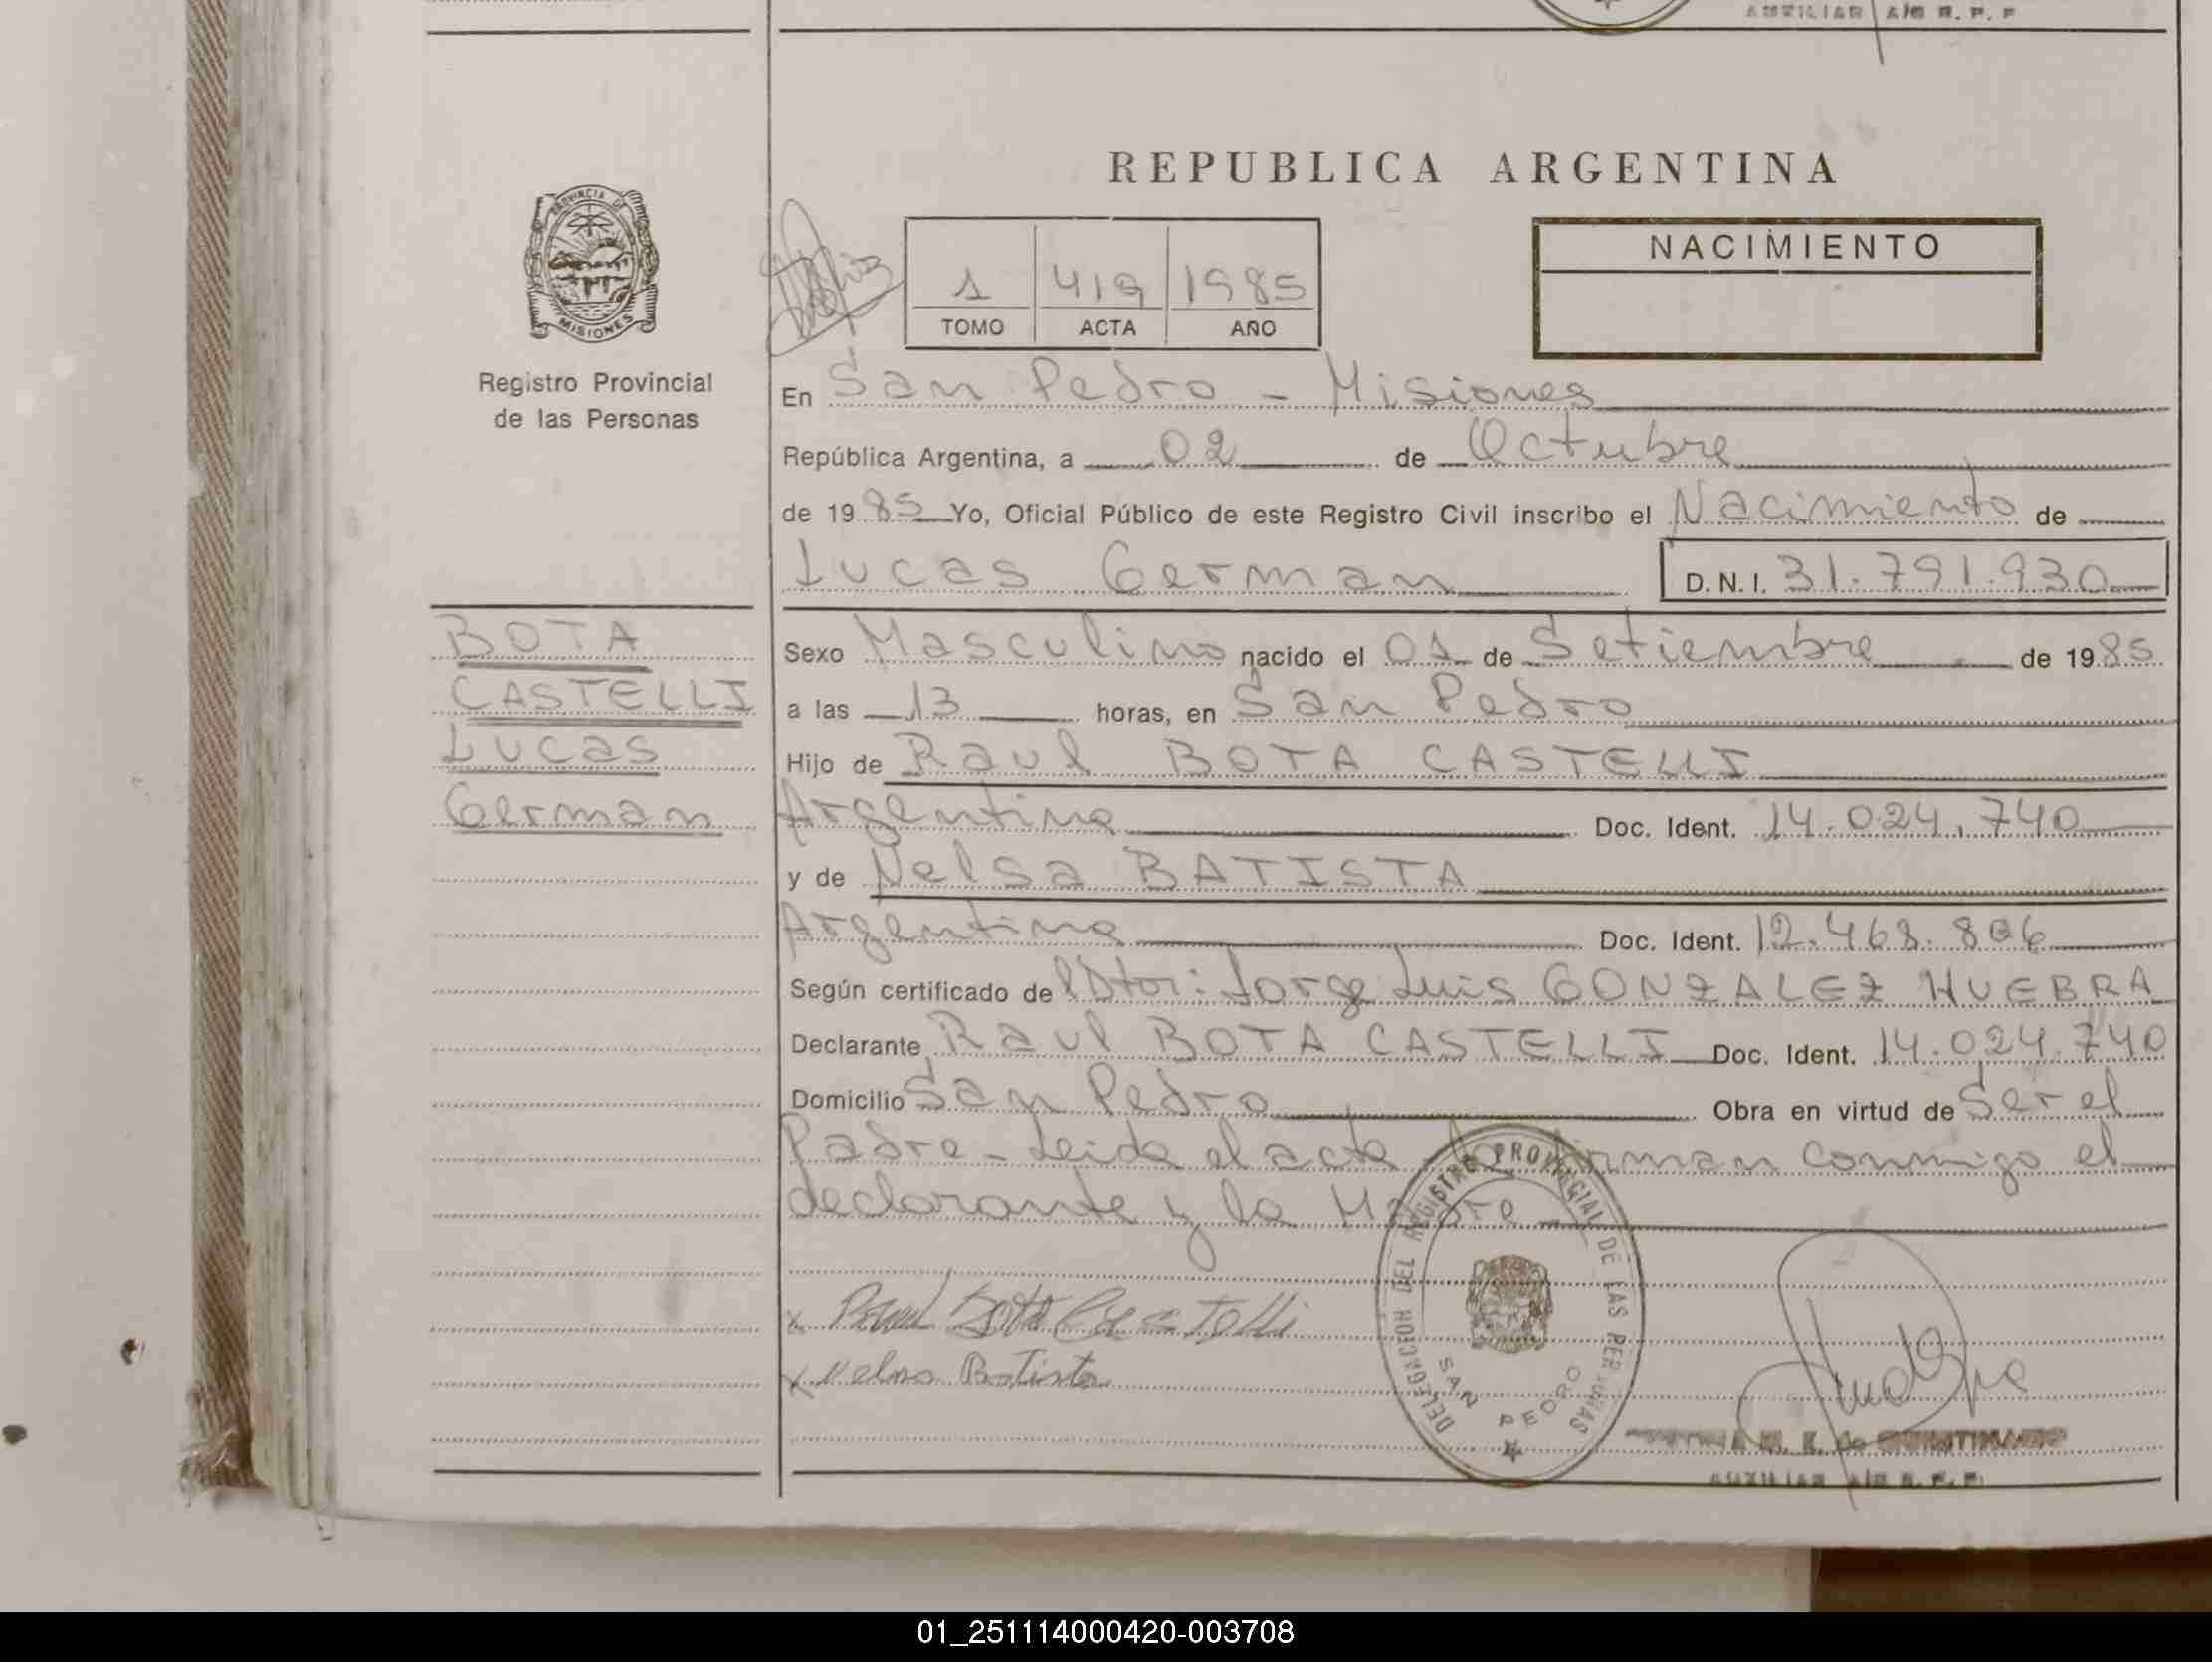 AUXILIAR A/C R. P. P
REPUBLICA ARGENTINA
PROVINCIA DE
MISIONES
Registro Provincial
de las Personas
1 419 1985
TOMO ACTA AÑO
NACIMIENTO
En San Pedro - Misiones
República Argentina, a 02 de Octubre
de 1985 Yo, Oficial Público de este Registro Civil inscribo el Nacimiento de
Lucas German D.N.I. 31.791.930
BOTA
CASTELLI
Lucas
German
Sexo Masculino nacido el 01 de Setiembre de 1985
a las 13 horas, en San Pedro
Hijo de Raul BOTA CASTELLI
Argentino Doc. Ident. 14.024.740
y de Nelsa BATISTA
Argentina Doc. Ident. 12.468.806
Según certificado del Dtor: Jorge Luis GONZALEZ HUEBRA
Declarante Raul BOTA CASTELLI Doc. Ident. 14.024.740
Domicilio San Pedro Obra en virtud de Ser el
Padre - Leida el acta la firman conmigo el
declarante y la Madre
x Raul Bota Castelli
x Nelsa Batista
DELEGACION DEL REGISTRO PROVINCIAL DE LAS PERSONAS
SAN PEDRO
AUXILIAR A/C R. P. P.
01_251114000420-003708